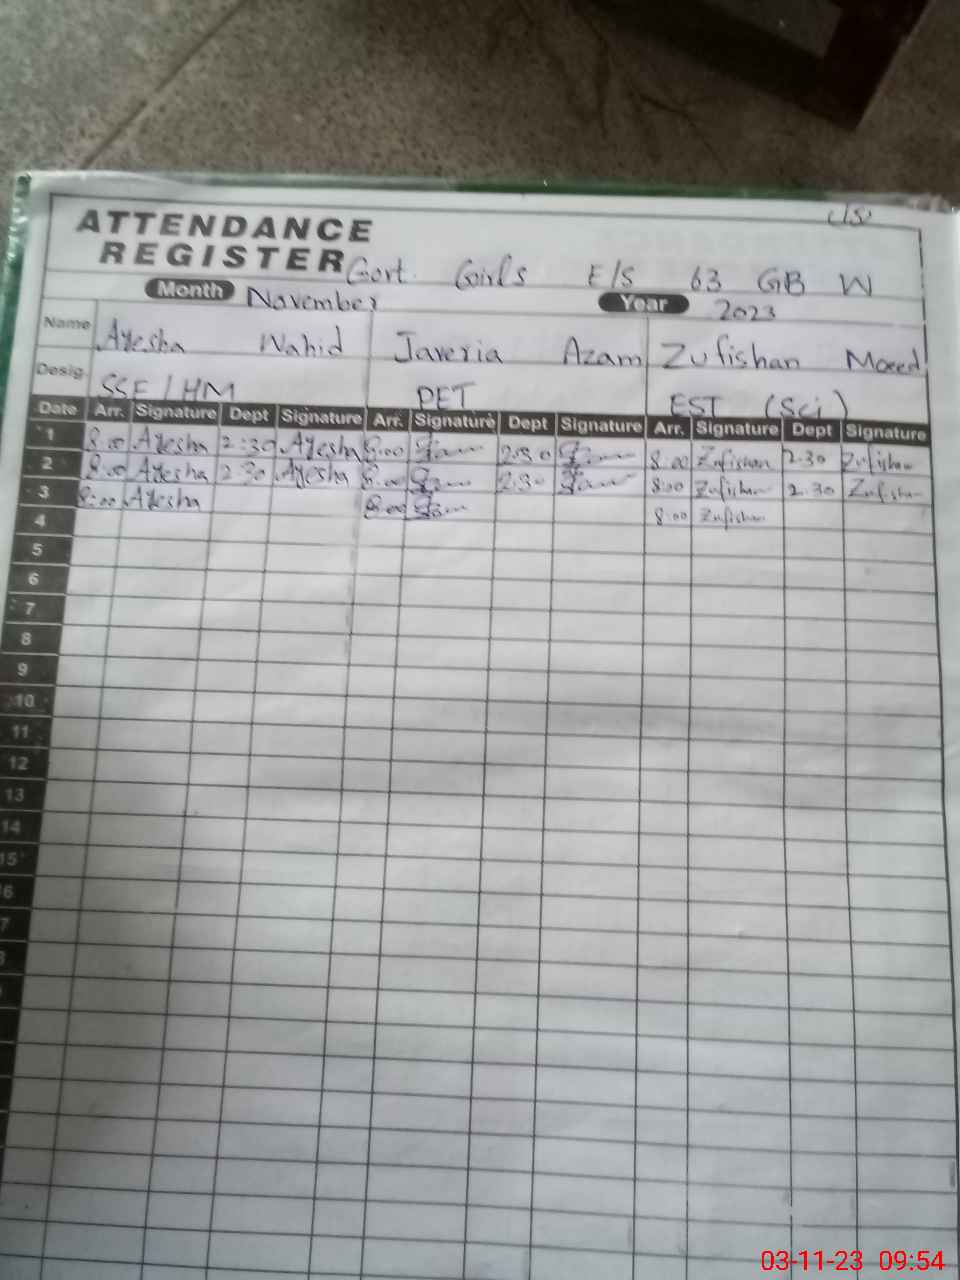 ATTENDANCE
REGISTER Govt. Girls E/S 63 GB W
Month November Year 2023
Name Ayesha Wahid Javeria Azam Zufishan
Desig. SSE/HM PET EST (Sci)
Date Arr. Signature Dept Signature Arr. Signature Dept Signature Arr. Signature Dept Signature
1 8:00 Ayesha 2:30 Ayesha 8:00 2:30 8:00 Zufishan 2:30 Zufishan
2 8:00 Ayesha 2:30 Ayesha 8:00 2:30 8:00 Zufishan 2:30 Zufishan
3 8:00 Ayesha 8:00 8:00 Zufishan
4
5
6
7
8
9
10
11
12
13
14
15
6
7
03-11-23 09:54